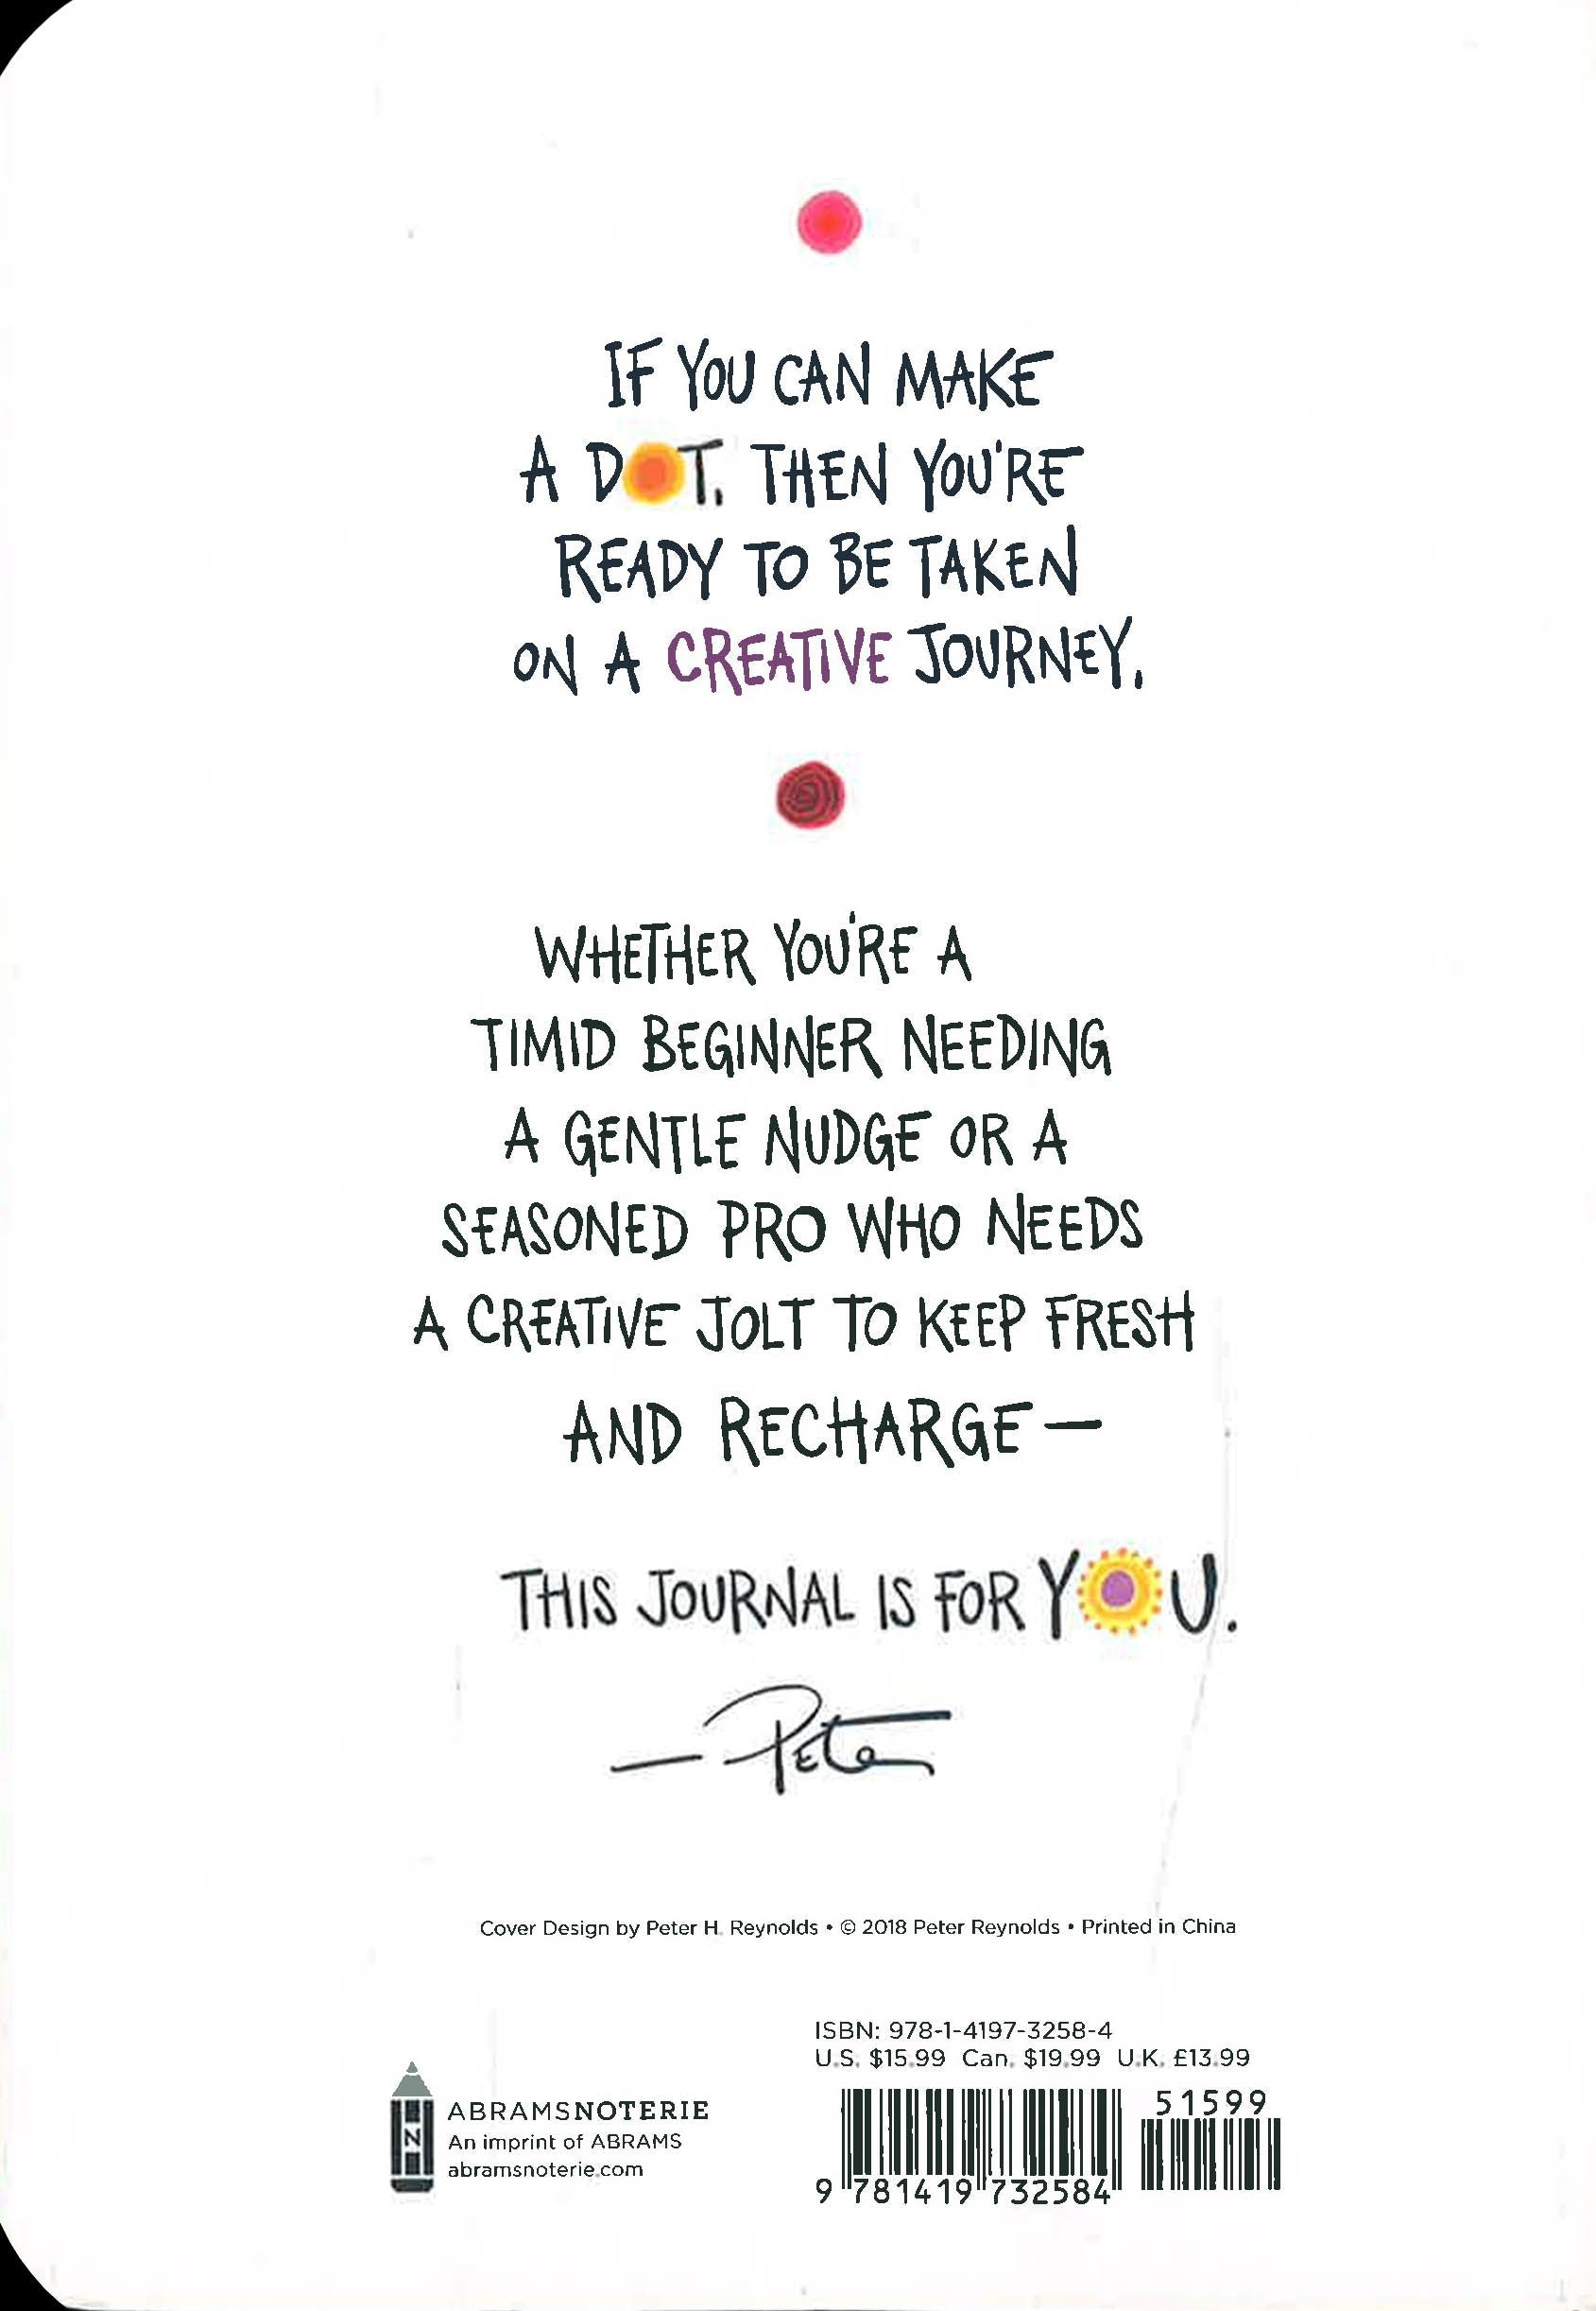 IF YOU CAN MAKE
A DOT, THEN YOU'RE
READY TO BE TAKEN
ON A CREATIVE JOURNEY.
WHETHER YOU'RE A
TIMID BEGINNER NEEDING
A GENTLE NUDGE OR A
SEASONED PRO WHO NEEDS
A CREATIVE JOLT TO KEEP FRESH
AND RECHARGE—
THIS JOURNAL IS FOR YOU.
— Peter
Cover Design by Peter H. Reynolds • © 2018 Peter Reynolds • Printed in China
ISBN: 978-1-4197-3258-4
U.S. $15.99 Can. $19.99 U.K. £13.99
51599
9 781419 732584
N
ABRAMSNOTERIE
An imprint of ABRAMS
abramsnoterie.com